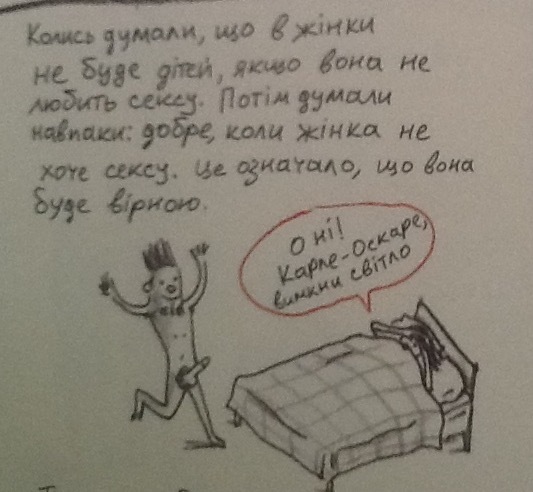 Колись думали, що в жінки
не буде дітей, якщо вона не
любить сексу. Потім думали
навпаки: добре, коли жінка не
хоче сексу. Це означало, що вона
буде вірною.
О ні!
Карле-Оскаре,
вимкни світло